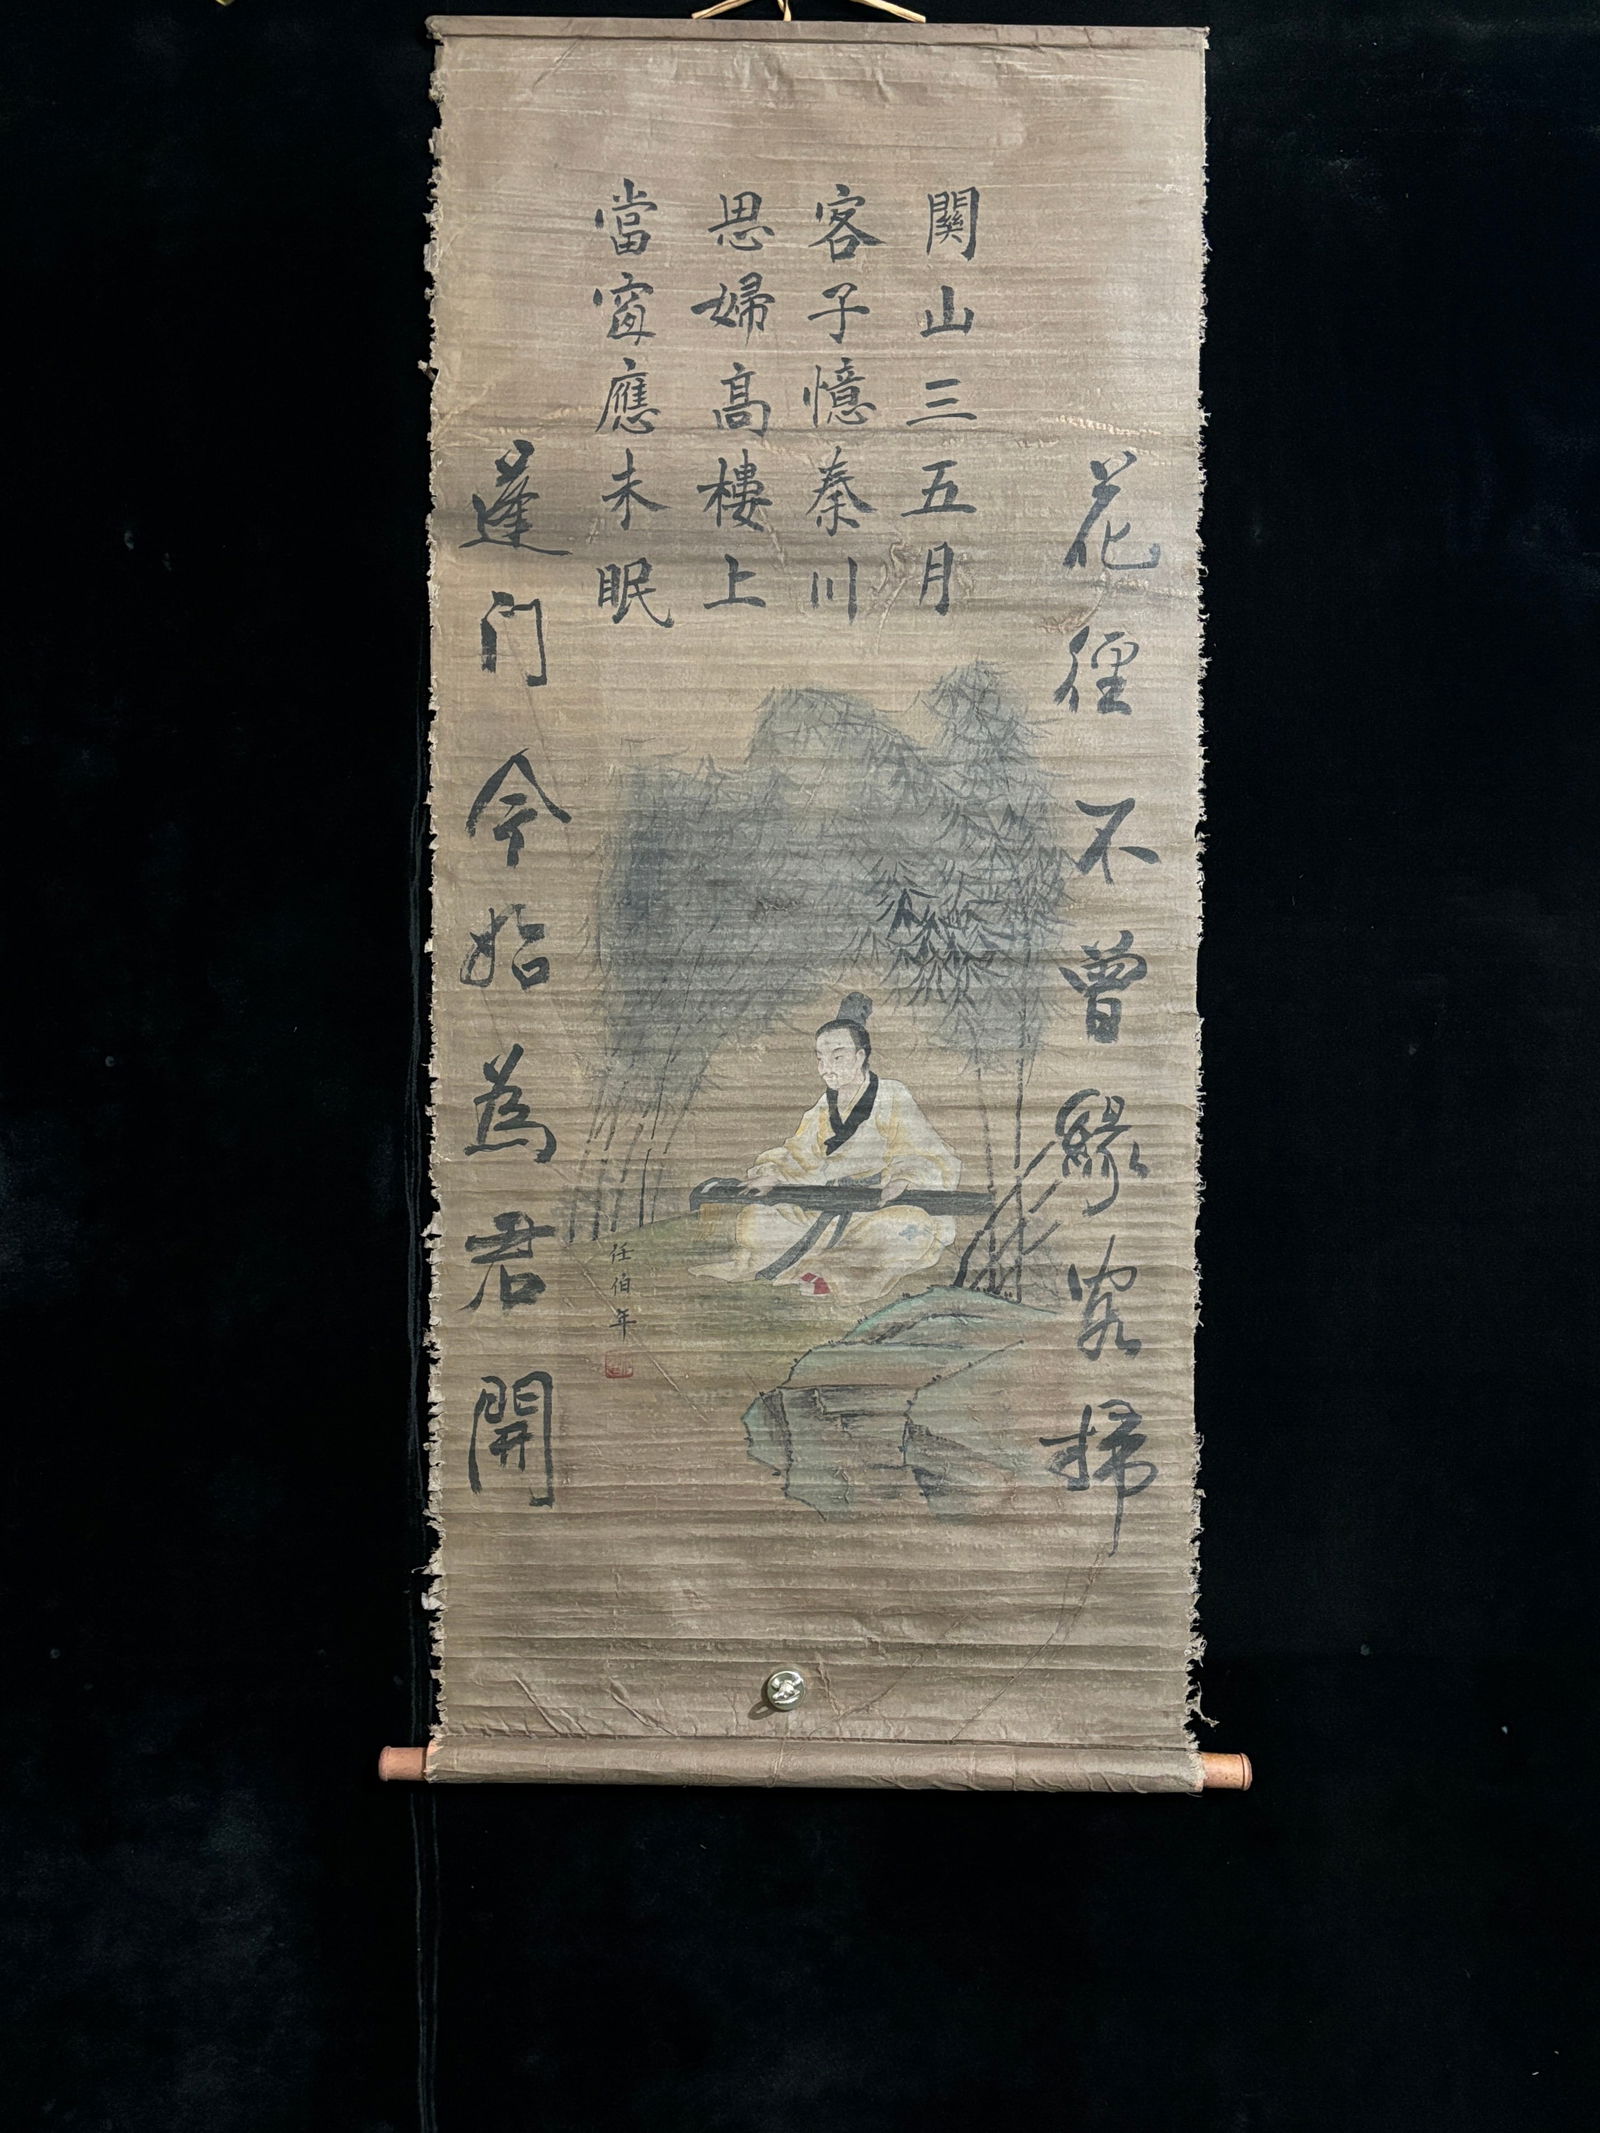 花徑不曾緣客掃
關山三五月
客子憶秦川
思婦高樓上
當窗應未眠
蓬门今始為君開
任伯年